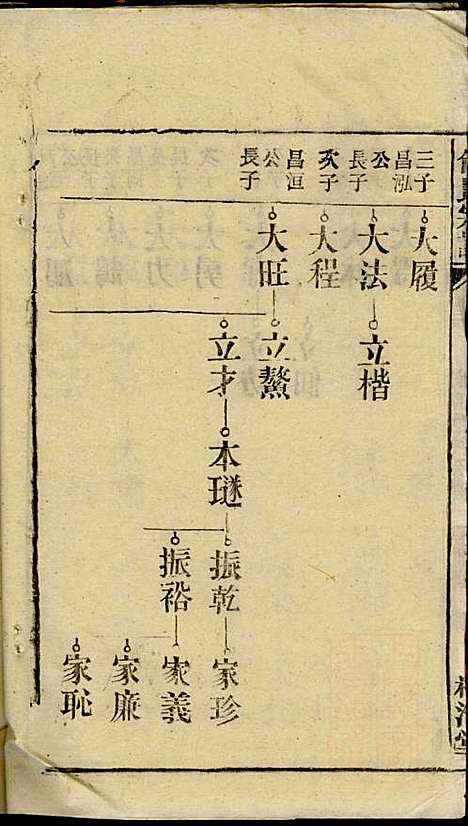 三子
昌泓
公
長子
次子
昌洹
公
長子
大履
大法
大程
大旺
立楷
立鰲
立才
本璲
振乾
振裕
家珍
家義
家廉
家恥